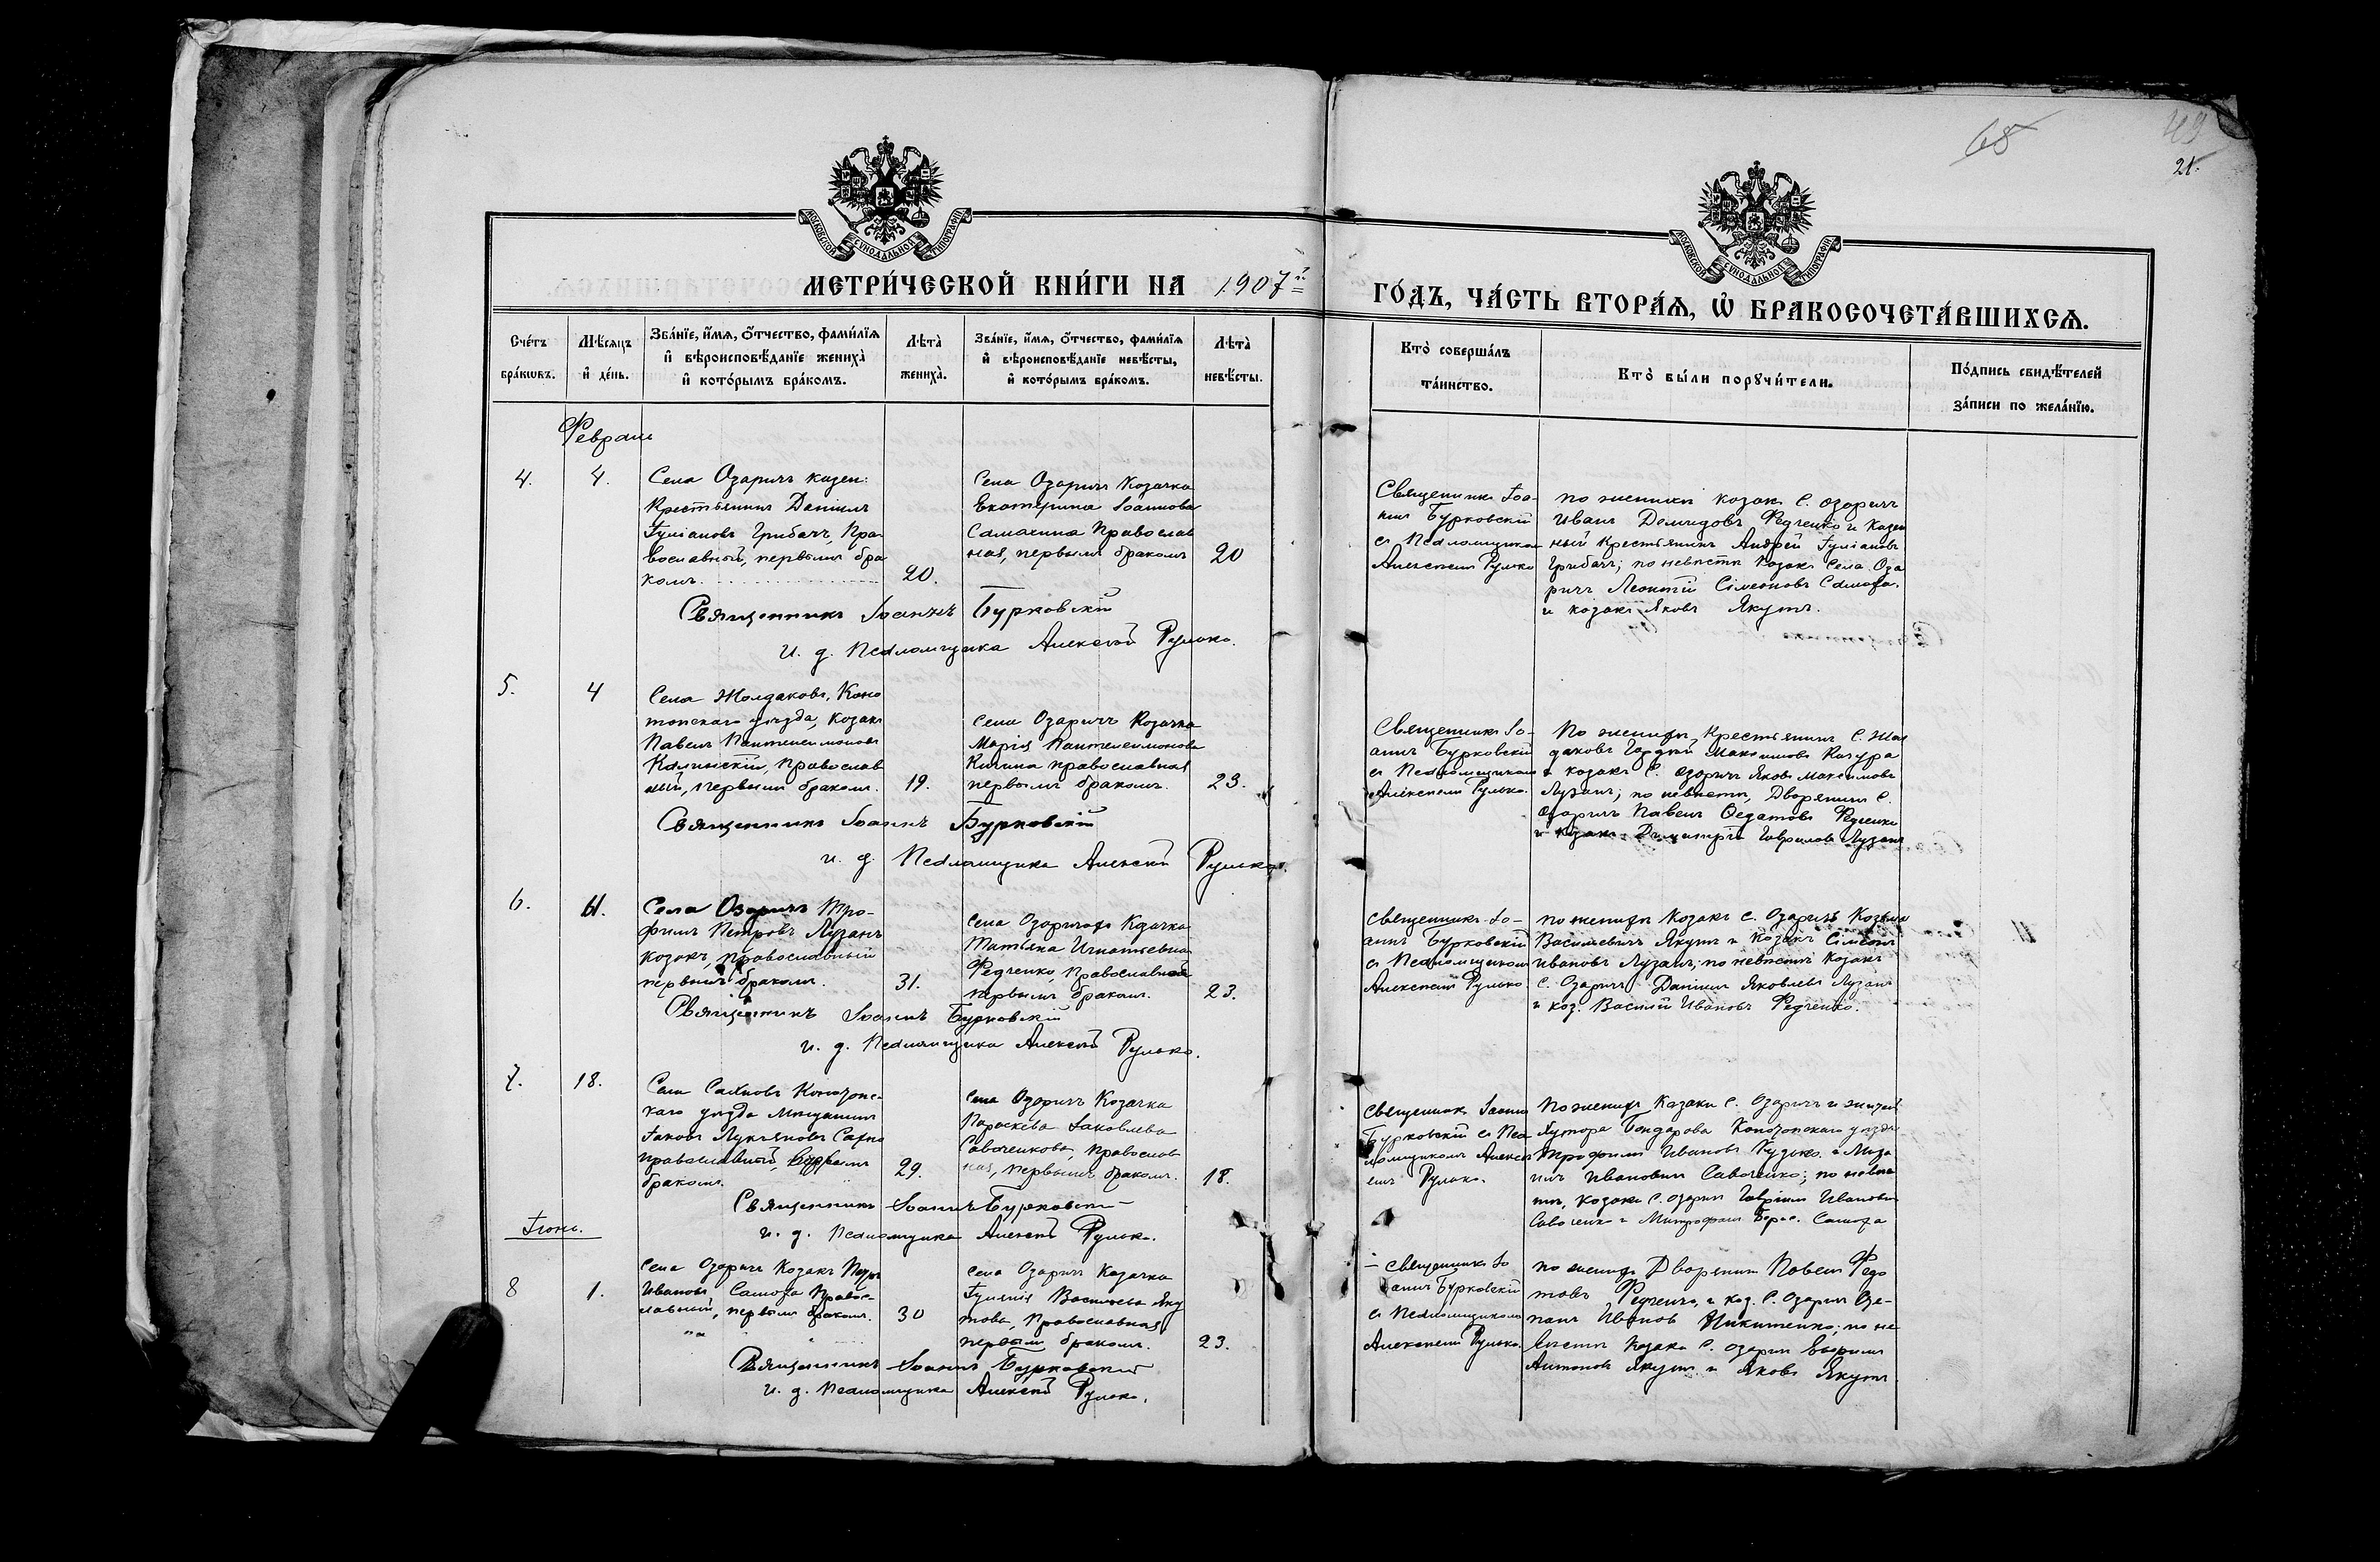 68
49
21.
МОСКОВСКОЙ СУНОДАЛЬНОЙ ТИПОГРАФІИ
МОСКОВСКОЙ СУНОДАЛЬНОЙ ТИПОГРАФІИ
МЕТРИ́ЧЕСКОЙ КНИ́ГИ НА 1907й
ГО́ДЪ, ЧА́СТЬ ВТОРА́Я, Ѡ҆ БРАКОСОЧЕТА́ВШИХСѦ.
Сче́тъ бра́кѡвъ.
Мѣ́сѧцъ и҆ де́нь.
Зва́нїе, и҆́мѧ, о҆́тчество, фами́лїѧ и҆ вѣроисповѣ́данїе жениха̀ и҆ кото́рымъ бра́комъ.
Лѣта̀ жениха̀.
Зва́нїе, и҆́мѧ, о҆́тчество, фами́лїѧ и҆ вѣроисповѣ́данїе невѣ́сты, и҆ кото́рымъ бра́комъ.
Лѣта̀ невѣ́сты.
Кто̀ соверша́лъ та́инство.
Кто̀ бы́ли порꙋчи́тели.
По́дпись свидѣ́телей за́писи по жела́нїю.
Февраль
4.
4.
Села Озаричъ казен:
Крестьянинъ Даніилъ
Іуліановъ Грибачъ, Пра
вославный, первымъ бра
комъ.
20.
Села Озаричъ Козачка
Екатерина Іоаннова
Самохина Православ
ная, первымъ бракомъ
20
Священникъ Іоа-
ннъ Бурковскій
съ Псаломщикомъ
Алексѣемъ Рулько
по женихѣ козакъ С. Озаричъ
Иванъ Демидовъ Федченко и Казен
ный Крестьянинъ Андрей Іуліановъ
Грибачъ; по невѣстѣ Козакъ Села Оза
ричъ Леонтій Сімеоновъ Самоха.
и козакъ Яковъ Якутъ.
Священникъ Іоаннъ Бурковскій
И. д. Псаломщика Алексѣй Рулько.
5.
4
Села Жолдаковъ, Коно
топскаго уѣзда, Козакъ
Павелъ Пантелеимоновъ
Православ
ный, первымъ бракомъ.
19.
Села Озаричъ Козачка
Марія Пантелеимонова
православная
первымъ бракомъ.
23.
Священникъ Іо-
аннъ Бурковскій
съ Псаломщикомъ
Алексѣемъ Рулько.
По женихѣ, Крестьянинъ С. Жол
даковъ Максимовъ Качура
и козакъ С. Озаричъ Яковъ Максимовъ
Лузанъ; по невѣстѣ, Дворянинъ С.
Озаричъ Павелъ Федотовъ Федченко
и козакъ Димитрій Гавриловъ Лузанъ
Священникъ Іоаннъ Бурковскій
и. д. Псаломщика Алексѣй Рулько.
6.
11.
Села Озаричъ Тро-
фимъ Петровъ Лузанъ
козакъ, православный
первымъ бракомъ.
31.
Села Озаричъ Козачка
Татьяна Игнатьевна
Федченко, православная
первымъ бракомъ.
23.
Священникъ Іо-
аннъ Бурковскій
съ Псаломщикомъ
Алексѣемъ Рулько.
по женихѣ Козакъ С. Озаричъ Козьма
Васильевичъ Якутъ и Козакъ Сімеонъ
Ивановъ Лузанъ; по невѣстѣ Козакъ
С. Озаричъ Даніилъ Яковлевъ Лузанъ
и коз. Василій Ивановъ Федченко.
Священникъ Іоаннъ Бурковскій
и. д. Псаломщика Алексѣй Рулько.
7.
18.
Села Сахновъ Конотопс-
каго уѣзда Мѣщанинъ
Іаковъ Лукьяновъ Сахно
православный, вторымъ
бракомъ.
29.
Села Озаричъ Козачка
Параскева Іаковлева
Савоченкова, православ
ная, первымъ бракомъ.
18.
Священникъ Іоаннъ
Бурковскій съ Пса
ломщикомъ Алексѣ
емъ Рулько.
По женихѣ, Казаки С. Озаричъ и жител
Хутора Бондарова Конотопскаго уѣзда
Трофимъ Ивановъ
Ивановичъ Савоченко; по невѣс
тѣ, козаки С. Озаричъ Гавріилъ Ивановъ
Савоченко и Митрофанъ Самоха
Священникъ Іоаннъ Бурковскій
и. д. Псаломщика Алексѣй Рулько.
Іюнь.
8
1.
Села Озаричъ Козакъ Петръ
Ивановъ Самоха Правос-
лавный, первымъ бракомъ.
30
Села Озаричъ Козачка
Іуліанія Васильева Яку
това, Православная
первымъ бракомъ.
23.
Священникъ Іо
аннъ Бурковскій
съ Псаломщикомъ
Алексѣемъ Рулько.
по женихѣ Дворянинъ Павелъ Федо
товъ Федченко, и коз. С. Озаричъ Сте-
панъ Ивановъ Никитенко; по не
вѣстѣ Козаки С. Озаричъ
Антоновъ Якутъ и Яковъ Якутъ
Священникъ Іоаннъ Бурковскій
и. д. Псаломщика Алексѣй Рулько.